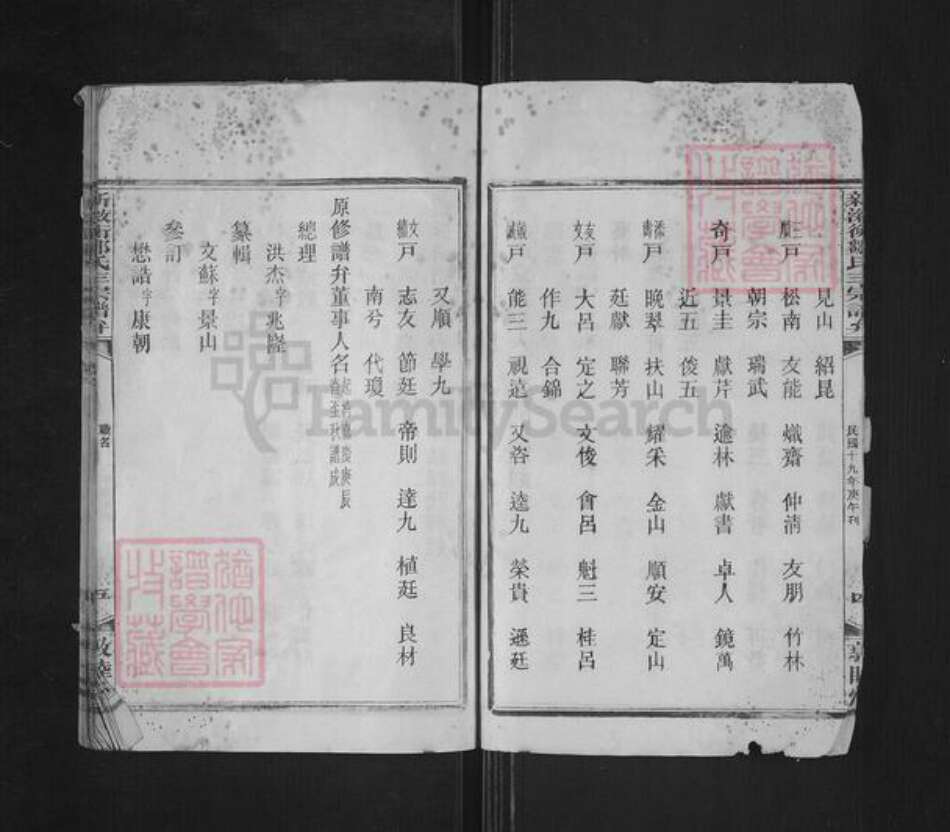 見山 紹昆
戶 松南 友能 熾齋 仲清 友朋 竹林
朝宗 瑞武
奇戶 景圭 獻芹 逾林 獻書 卓人 鏡萬
近五 俊五
戶 晚翠 扶山 耀采 金山 順安 定山
廷獻 聯芳
戶 大呂 定之 文俊 會呂 魁三 桂呂
作九 合錦
戶 能三 視遠 又咨 逵九 榮貴 遜廷
民國十九年庚午刊
四
又順 學九
戶 志友 節廷 帝則 達九 植廷 良材
南兮 代瓊
原修譜弁董事人名
總理
洪杰字兆隆
纂輯
文蘇字景山
參訂
懋誥字康朝
職名
五
敦睦
FamilySearch